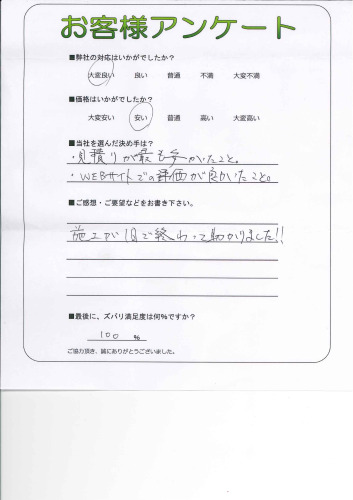 お客様アンケート
■弊社の対応はいかがでしたか?
大変良い 良い 普通 不満 大変不満
■価格はいかがでしたか?
大変安い 安い 普通 高い 大変高い
■当社を選んだ決め手は?
・見積りが最も安かったこと。
・WEBサイトでの評価が良かったこと。
■ご感想・ご要望などをお書き下さい。
施工が1日で終わって助かりました!!
■最後に、ズバリ満足度は何%ですか?
100 %
ご協力頂き、誠にありがとうございました。